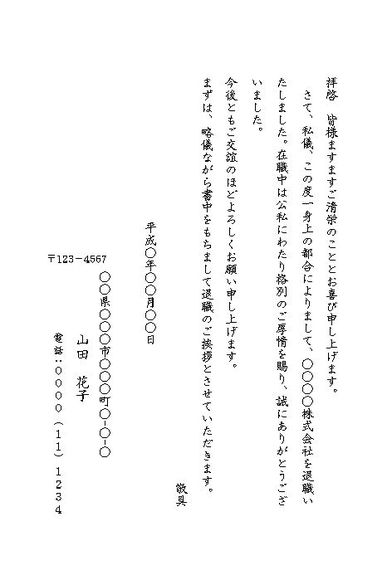 拝啓　皆様ますますご清栄のこととお喜び申し上げます。
　さて、私儀、この度一身上の都合によりまして、〇〇〇〇株式会社を退職い
たしました。在職中は公私にわたり格別のご厚情を賜り、誠にありがとうござ
いました。
今後ともご交誼のほどよろしくお願い申し上げます。
まずは、略儀ながら書中をもちまして退職のご挨拶とさせていただきます。
敬具
平成〇年〇〇月〇〇日
〒123-4567
〇〇県〇〇〇市〇〇〇町〇-〇-〇
山田　花子
電話：0000（11）1234